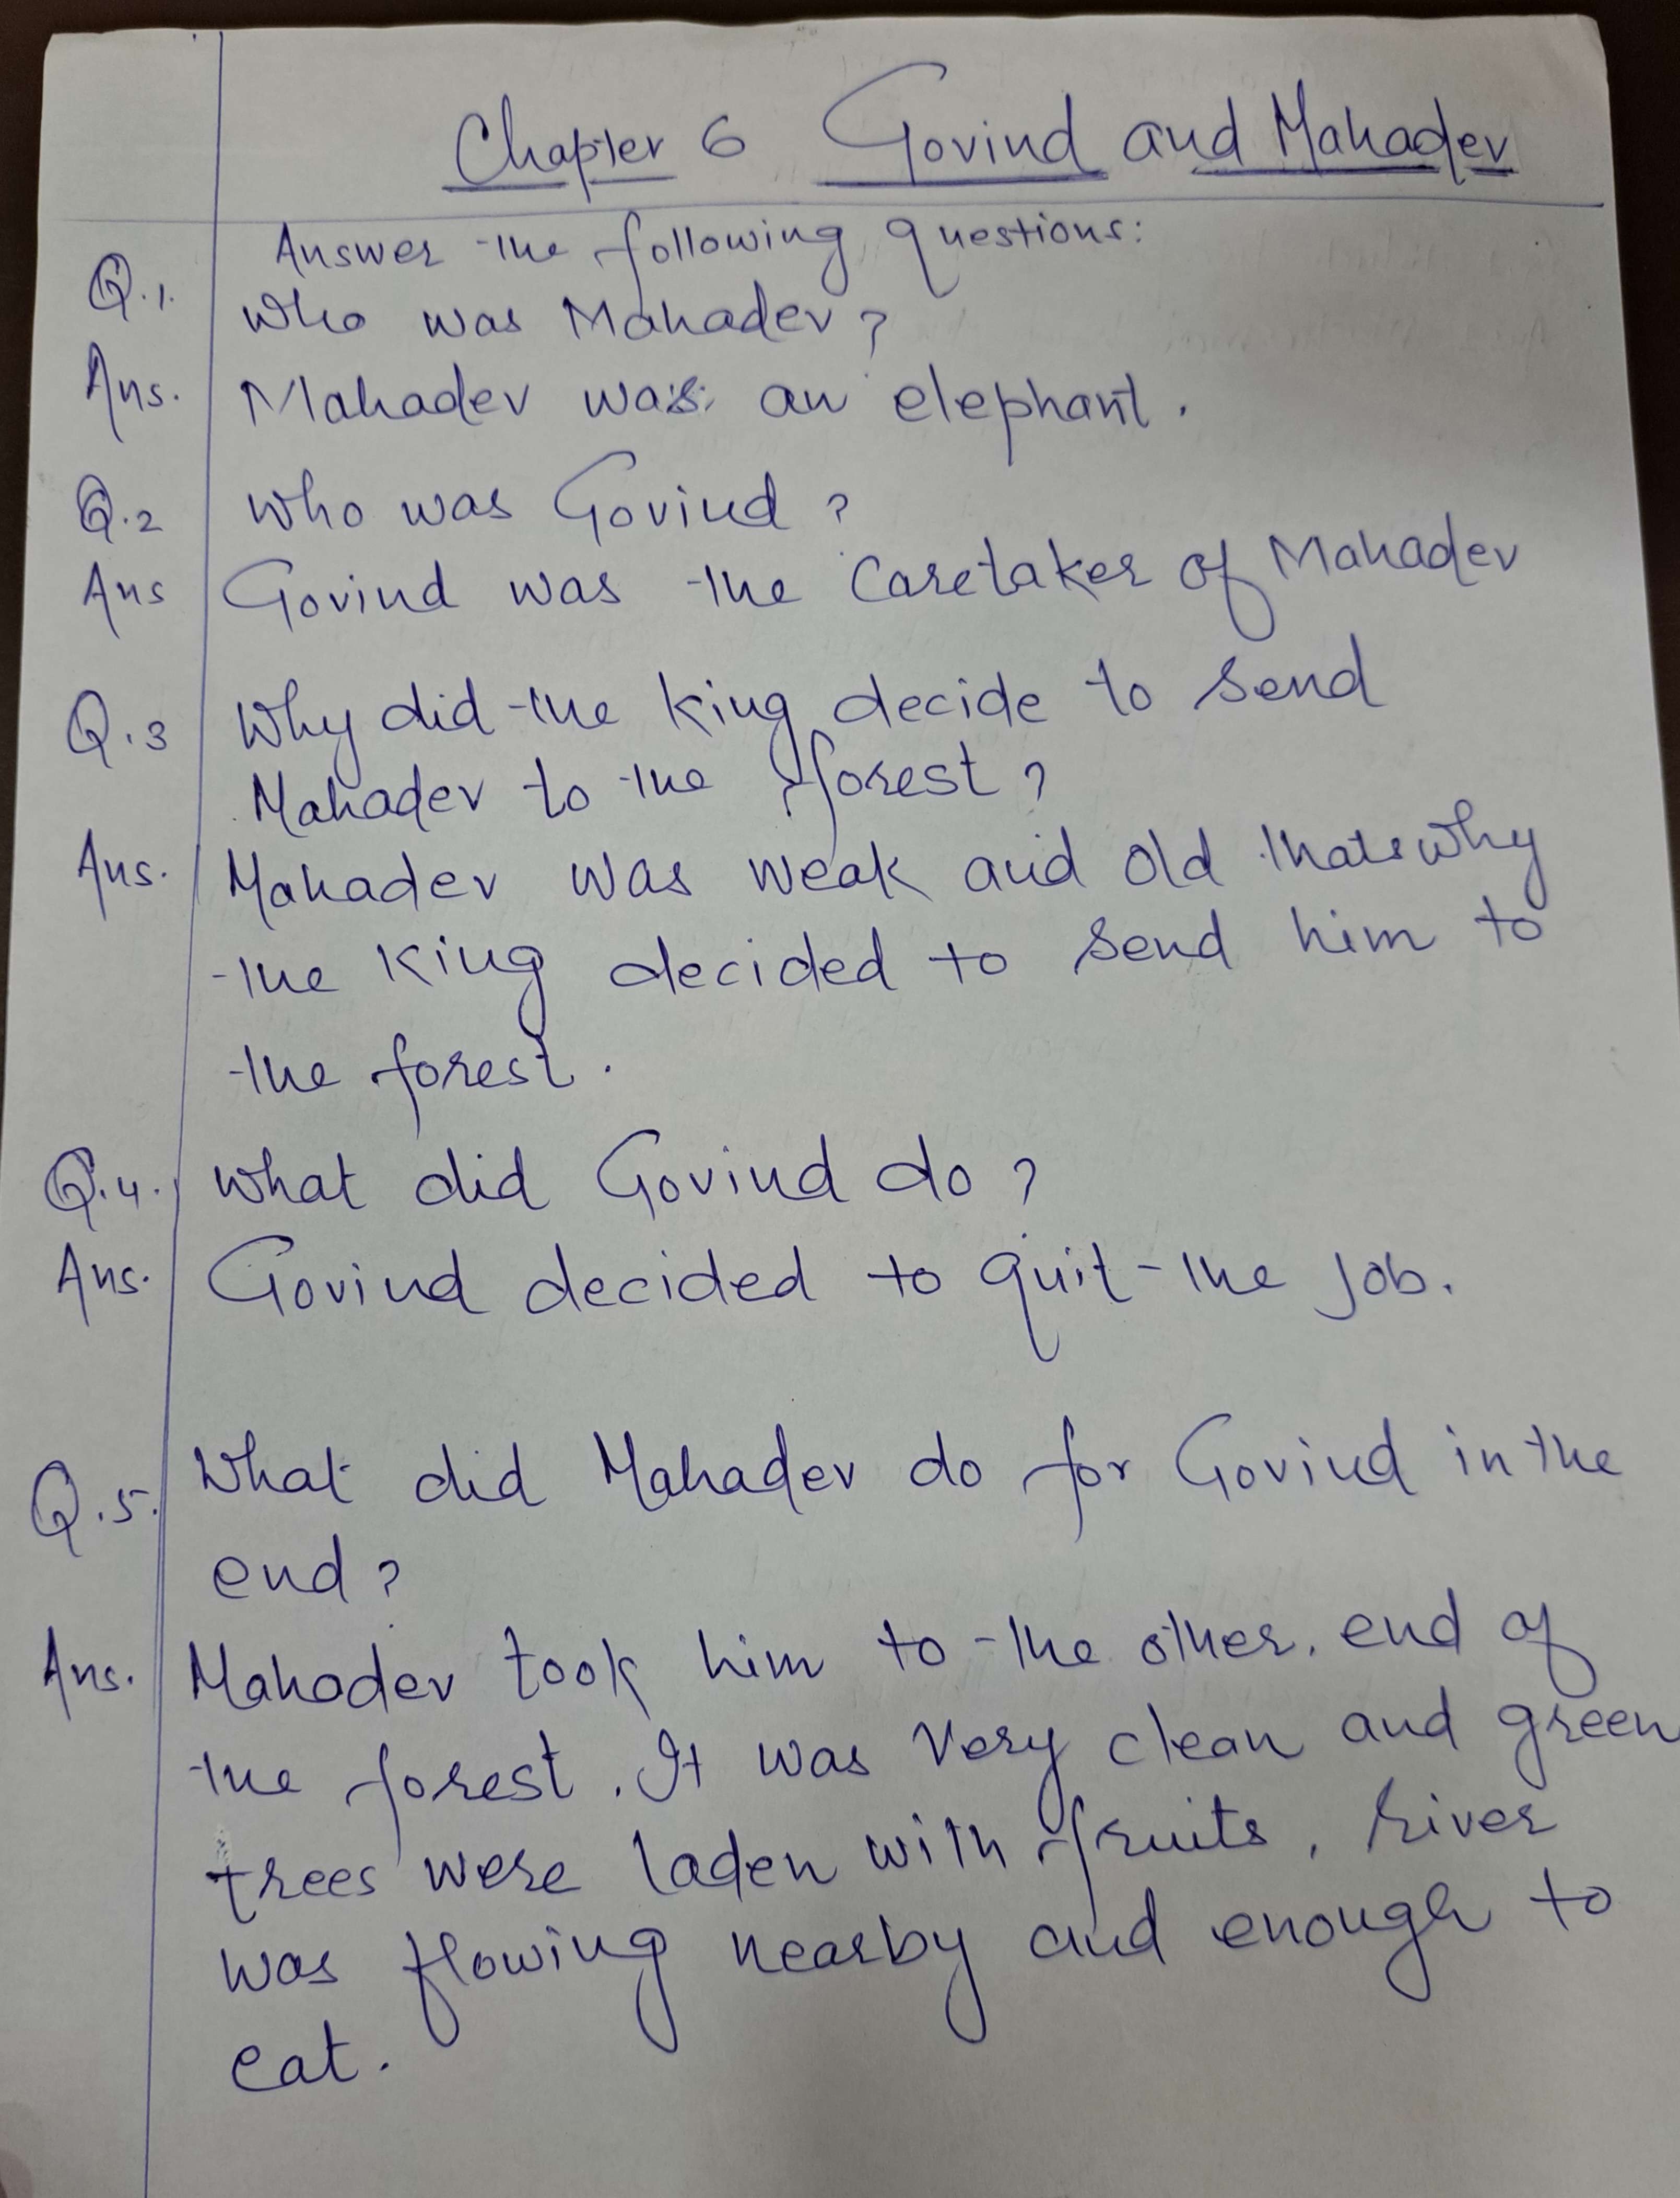 Chapter 6 Govind and Mahadev
Answer the following questions:
Q.1. Who was Mahadev?
Ans. Mahadev was an elephant.
Q.2 Who was Govind?
Ans Govind was the Caretaker of Mahadev
Q.3 Why did the king decide to send
Mahadev to the forest?
Ans. Mahadev was weak and old thats why
the king decided to send him to
the forest.
Q.4. What did Govind do?
Ans. Govind decided to quit the job.
Q.5. What did Mahadev do for Govind in the
end?
Ans. Mahadev took him to the other end of
the forest. It was very clean and green
trees were laden with fruits, river
was flowing nearby and enough to
eat.